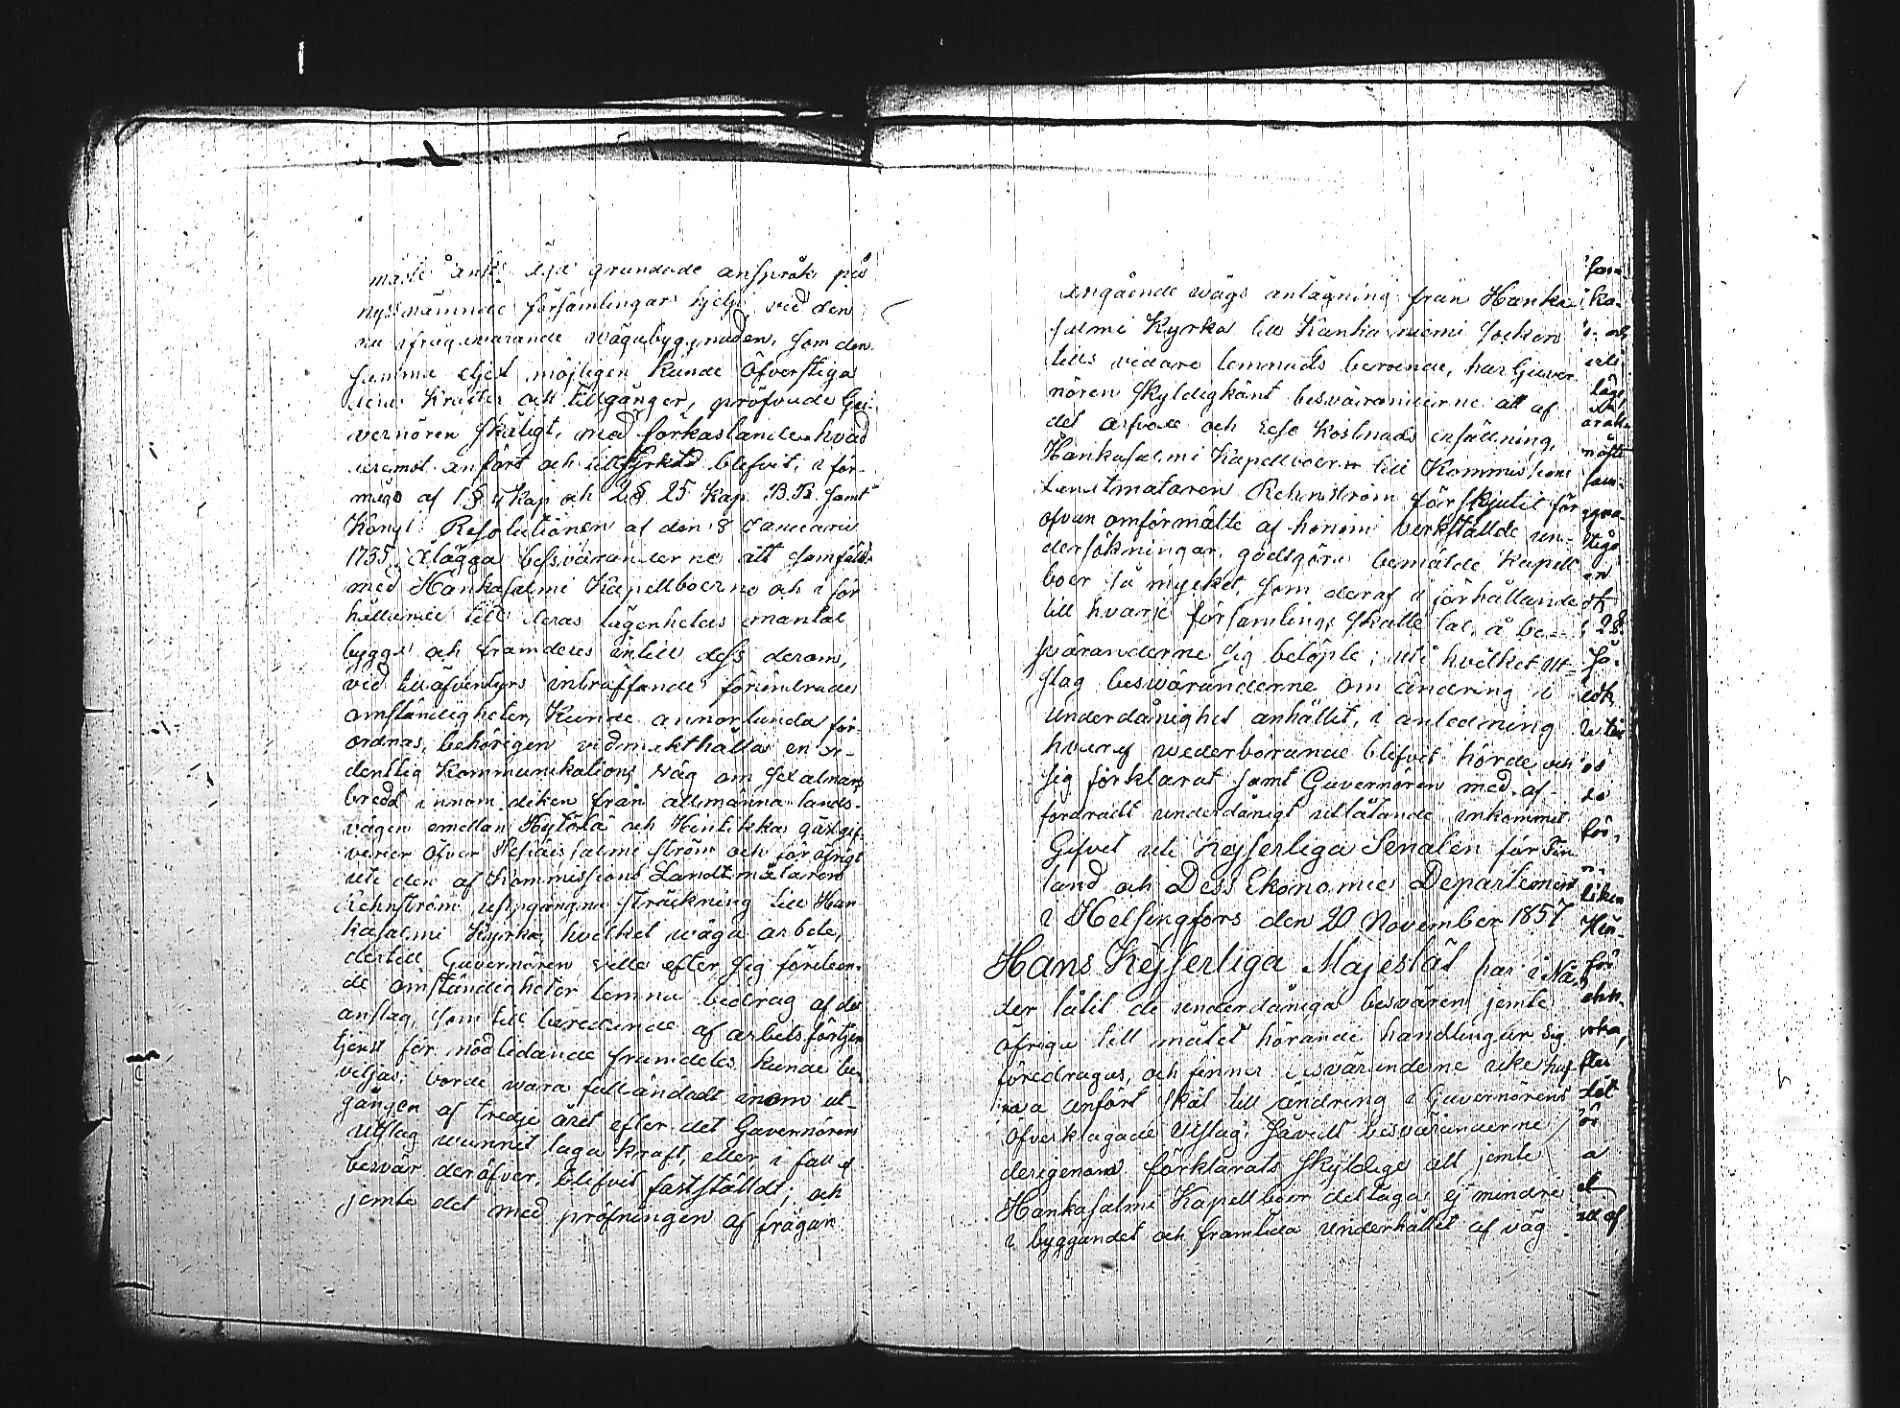 måste anses ega grundade anspråk på
nyssnämnde församlingars hjelp vid den
nu ifrågavarande vägabyggnaden, som den
samma eljest möjligen kunde öfverstiga
deras krafter och tillgångar, pröfvade Gu-
vernören skäligt, med förkastande hvad
deremot anfört och tillstyrkts blefvit, i för-
mågo af 1 § 4 Kap och 2 § 25 Kap. B.B. samt
Kongl. Resolutionen af den 8 Januarii
1735, ålägga besväranderne att samfäldt
med Hankasalmi Kapellboerne och i för
hållande till deras lägenheters mantal
bygga och framdeles intill dess derom,
vid tilläfventyrs inträffande förändrade
omständigheter, kunde annorlunda för-
ordnas, behörigen vidmakthålla en or-
dentlig Kommunikations väg om sex alnars
bredd innom diken från allmänna lands-
vägen emellan Hytölä och Hintikka gästgif
verier öfver Kesäissalmi ström och för öfrigt
uti den af Kommissions Landtmätaren
Rehnström uppgångna sträckning till Han
kasalmi Kyrka, hvilket väga arbete,
dertill Guvernören ville efter sig företeen-
de omständigheter lemna bidrag af de
anslag, som till beredande af arbetsförtjen
tjenst för nödlidande framdeles kunde be-
viljas, borde vara fulländadt inom ut-
gången af tredje året efter det Guvernörens
utslag vunnit laga kraft, eller i fall af
besvär deröfver, blefvit fastställdt, och
jemte det med pröfningen af frågan
angående vägs anläggning från Hanka
salmi Kyrka till Kanka niemi socken
tills vidare lemnats beroende, har Guver
nören skyldigkänt besväranderne att af
det arfvode och rese kostnads ersättning,
Hankasalmi Kapellboer till Kommissions
Landtmätaren Rehnström förskjutit för
ofvan omförmälte af honom verkställde un-
dersökningar, godtgöra bemälde Kapell
boer så mycket, som deraf i förhållande
till hvarje församlings skatte tal, å be-
sväranderne sig belöpte; uti hvilket ut-
slag besväranderne om ändring i
underdånighet anhållit, i anledning
hvaraf wederbörande blefvit hörde och
sig förklarat samt Guvernören med af-
fordradt underdånigt utlåtande inkommit
Gifvet uti Kejserliga Senaten för Fin
land och Dess Ekonomie Departement
i Helsingfors den 20 November 1857
Hans Kejserliga Majestät har i Nå-
der låtit de underdåniga besvären jemte
öfriga till målet hörande handlingar sig
föredragas, och finner besväranderne icke haf
va anfört skäl till ändring i Guvernörens
öfverklagade Utslag, såvidt besväranderne
derigenom förklarats skyldige att jemte
Hankasalmi Kapellboer deltaga ej mindre
i byggandet och framtida underhållet af väg